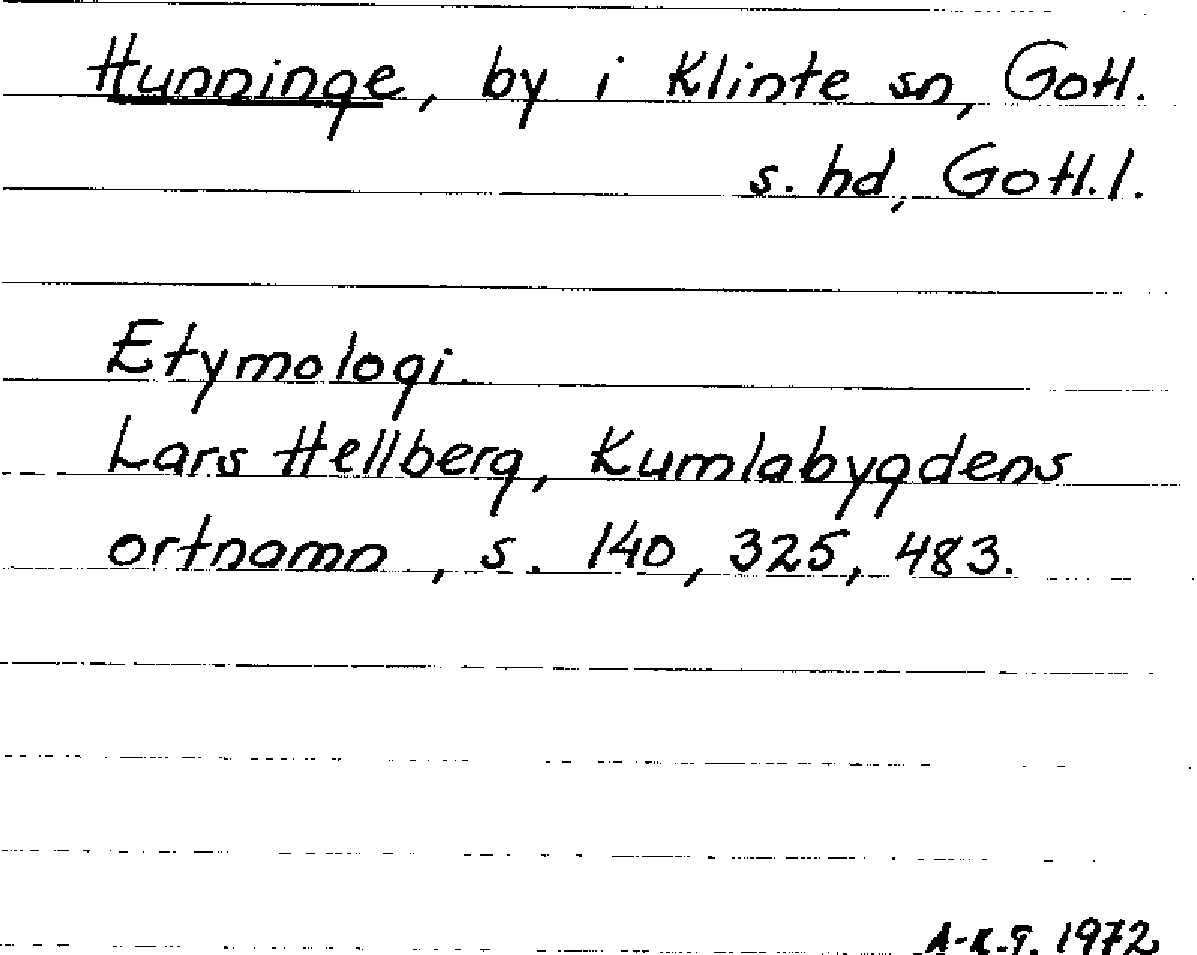 Hunninge, by i Klinte sn, Gotl.
s. hd, Gotl. l.
Etymologi.
Lars Hellberg, Kumlabygdens
ortnamn, s. 140, 325, 483.
A-K.G. 1972